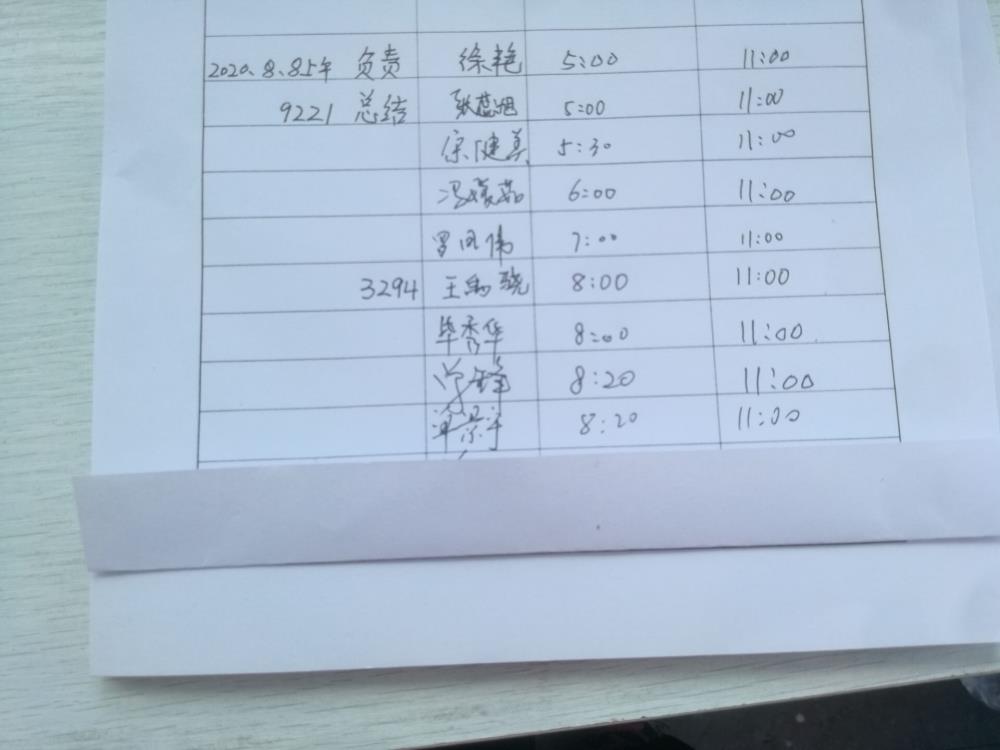 2020.8.8上午 负责 徐艳 5:00 11:00
9221 总结 张蕊旭 5:00 11:00
宗健美 5:30 11:00
冯媛茹 6:00 11:00
罗凤伟 7:00 11:00
3294 王 骁 8:00 11:00
毕秀华 8:00 11:00
8:20 11:00
8:20 11:00